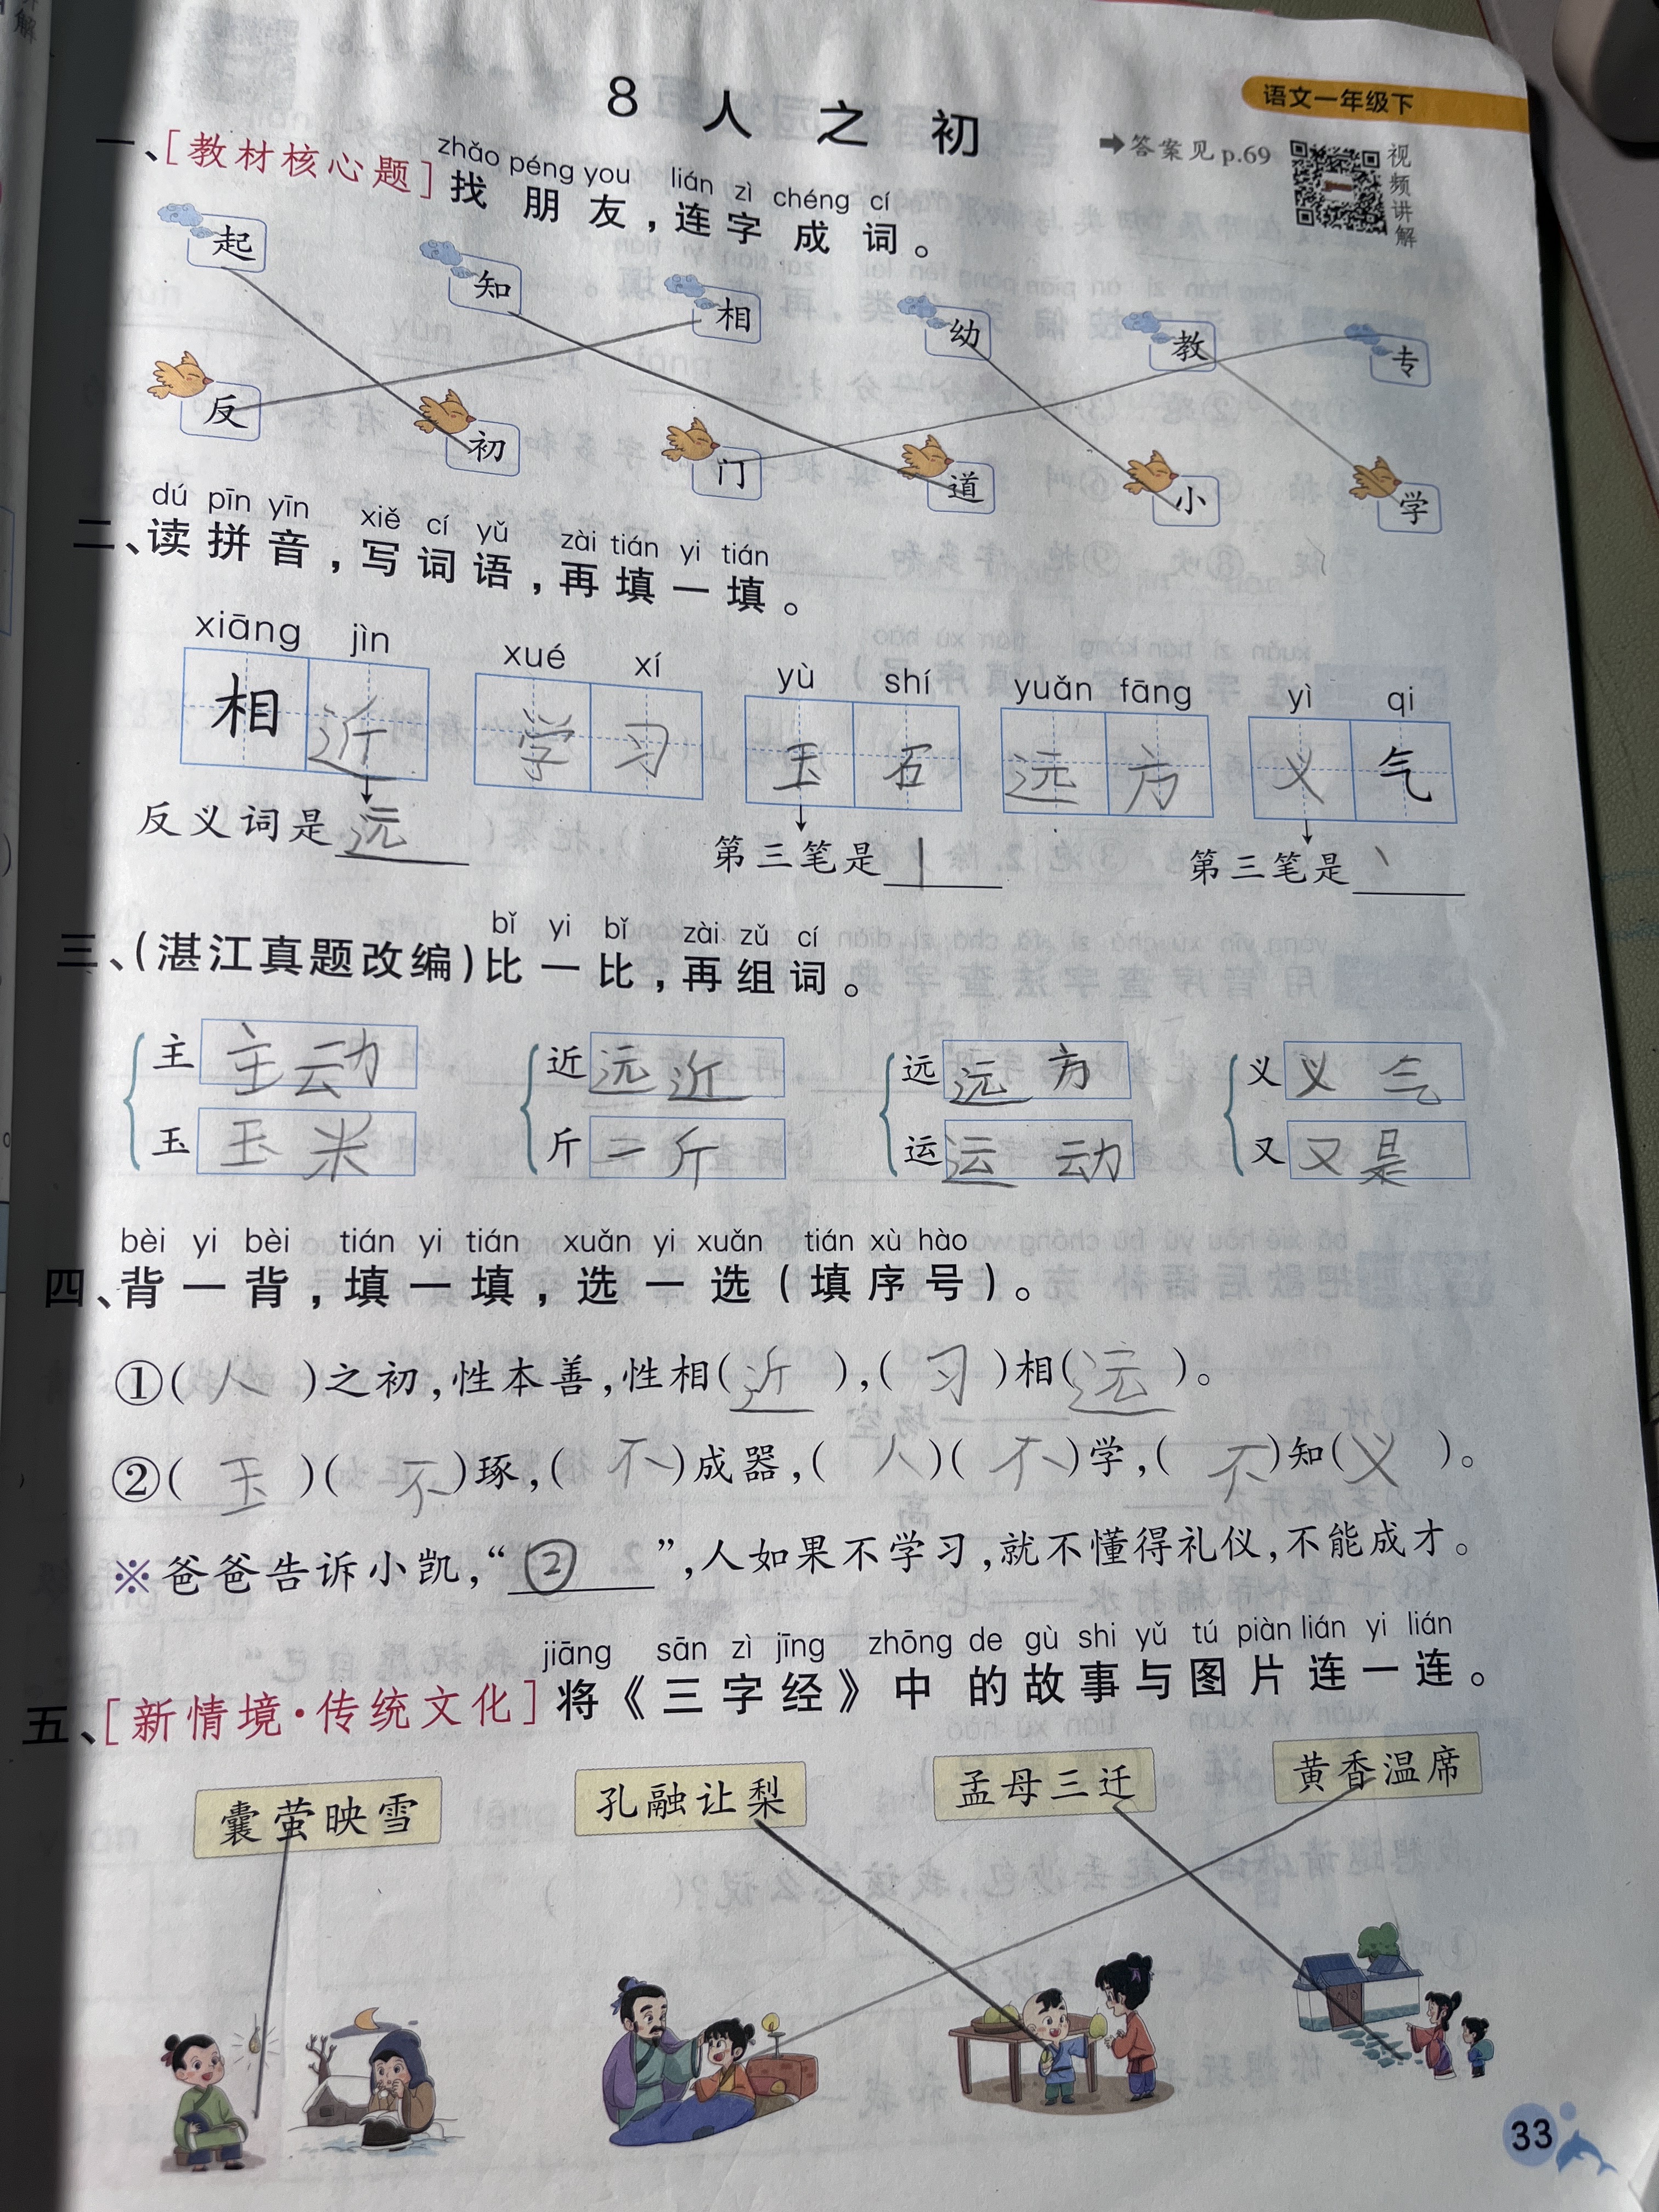 语文一年级下
8 人之初
➡答案见p.69
视频讲解
zhǎo péng you lián zì chéng cí
一、[教材核心题]找朋友,连字成词。
起 知 相 幼 教 专
反 初 门 道 小 学
dú pīn yīn xiě cí yǔ zài tián yi tián
二、读拼音,写词语,再填一填。
xiāng jìn xué xí yù shí yuǎn fāng yì qi
相近 学习 玉石 远方 义气
反义词是远 第三笔是丨 第三笔是丶
bǐ yi bǐ zài zǔ cí
三、(湛江真题改编)比一比,再组词。
主 主动 近 远近 远 远方 义 义气
玉 玉米 斤 二斤 运 运动 又 又是
bèi yi bèi tián yi tián xuǎn yi xuǎn tián xù hào
四、背一背,填一填,选一选(填序号)。
①(人)之初,性本善,性相(近),(习)相(远)。
②(玉)(不)琢,(不)成器,(人)(不)学,(不)知(义)。
※爸爸告诉小凯,“②”,人如果不学习,就不懂得礼仪,不能成才。
jiāng sān zì jīng zhōng de gù shi yǔ tú piàn lián yi lián
五、[新情境·传统文化]将《三字经》中的故事与图片连一连。
囊萤映雪 孔融让梨 孟母三迁 黄香温席
33